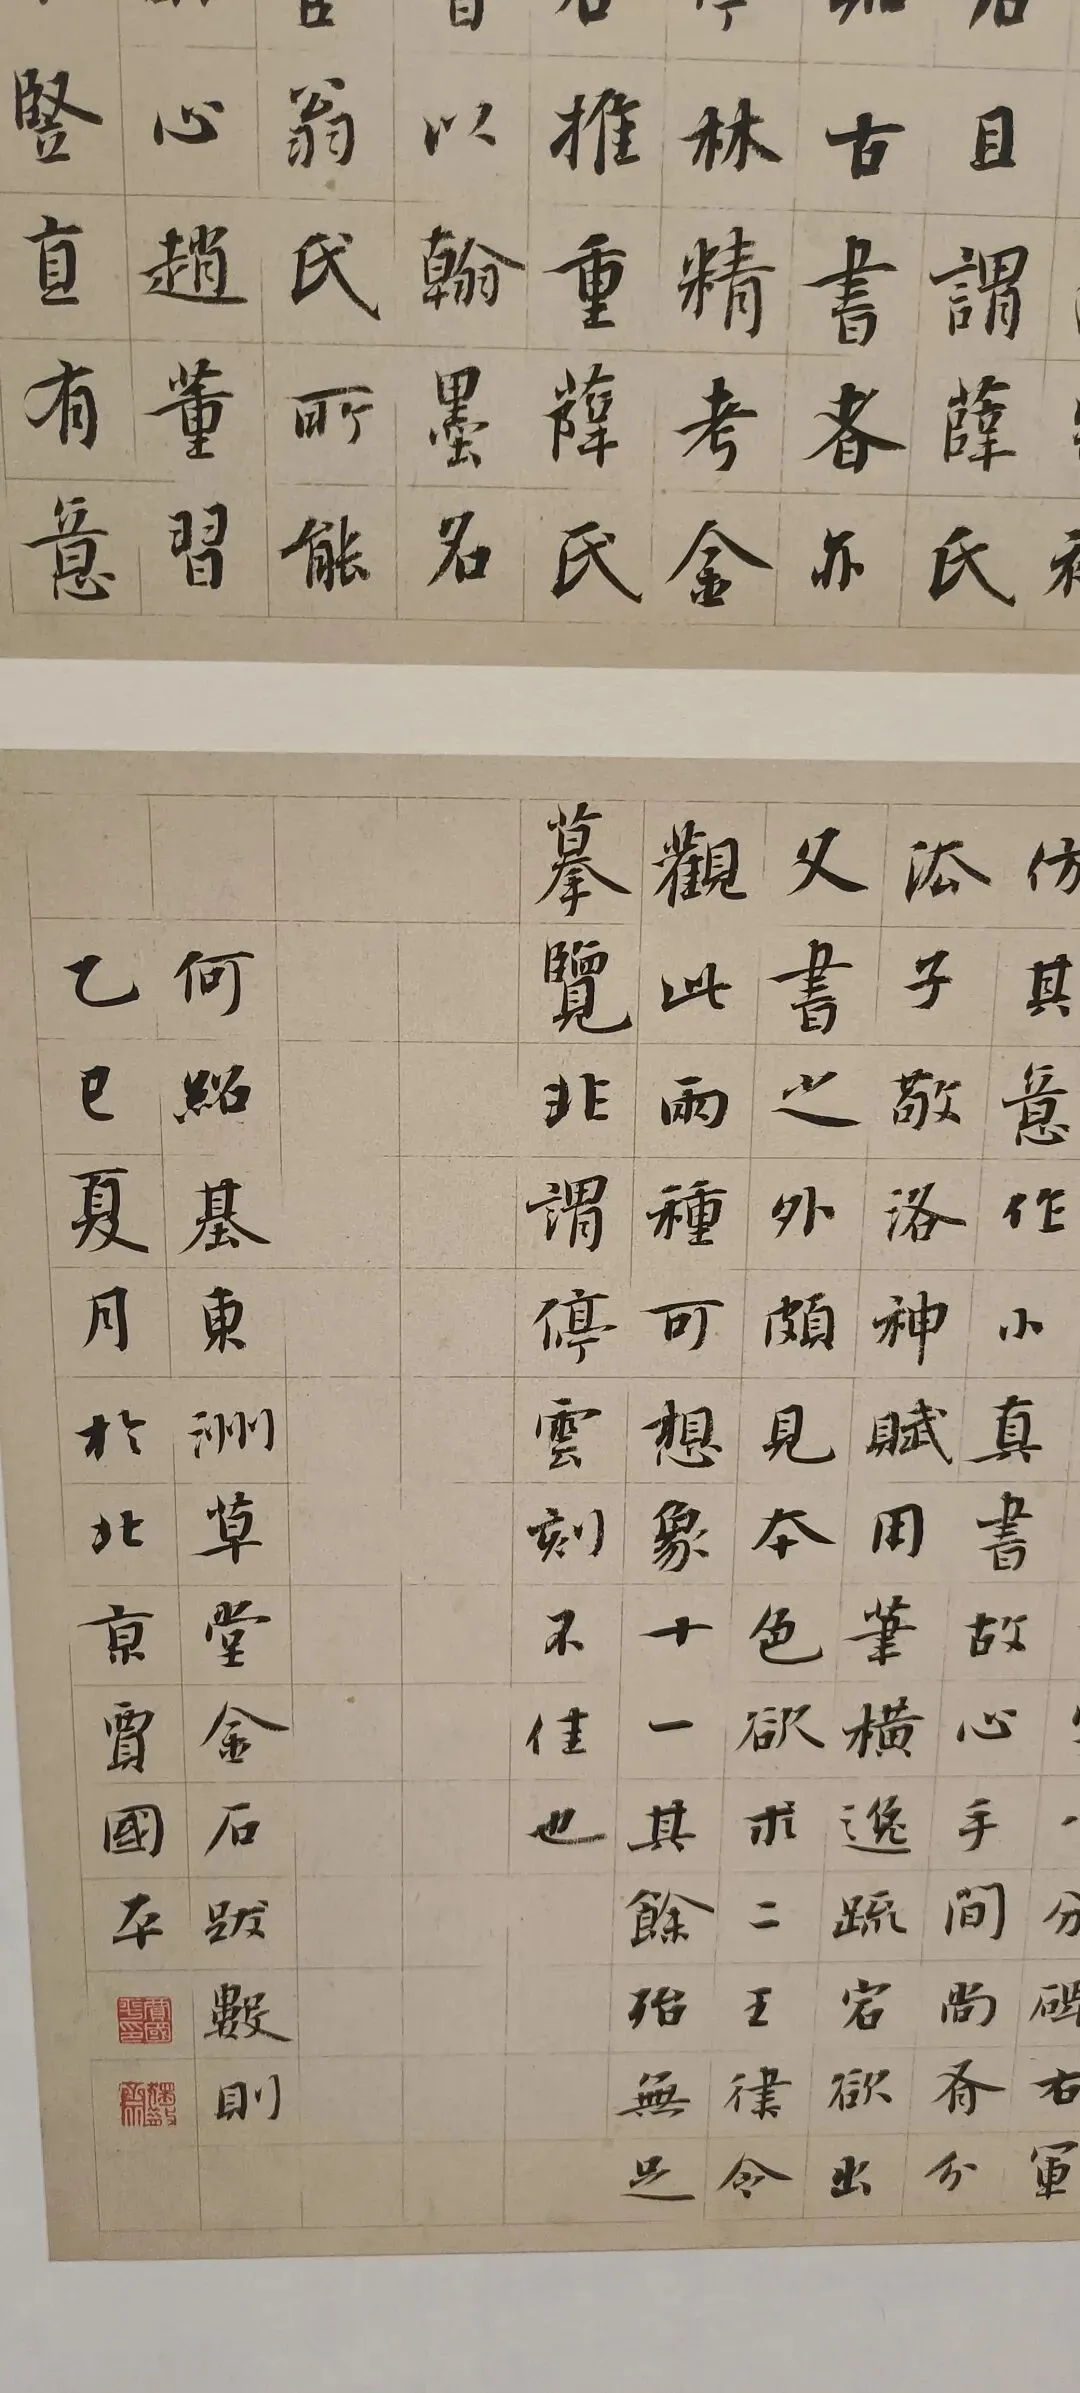 目謂薛氏
古書者亦
林精考金
推重薛氏
以翰墨名
翁氏所能
心趙董習
豎直有意
其意作小真書故心手間尚有分
法子敬洛神賦用筆橫逸疏宕欲出
又書之外頗見本色欲求二王律令
觀此兩種可想象十一其餘殆無足
摹覽非謂停雲刻不佳也
何紹基東洲草堂金石跋數則
乙巳夏月於北京賈國平